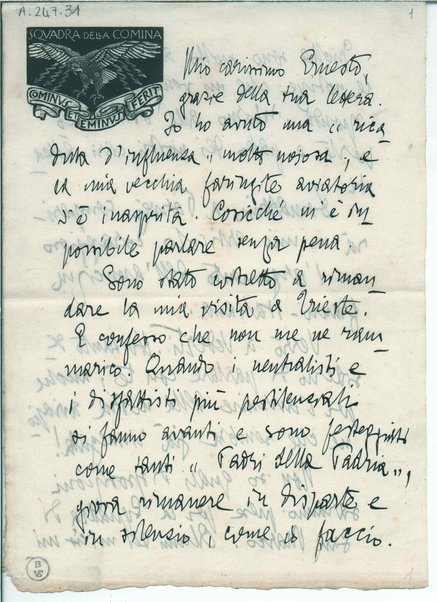 A.247.31
1
SQVADRA DELLA COMINA
COMINVS ET EMINVS FERIT
Mio carissimo Ernesto,
grazie della tua lettera.
Io ho avuto una "rica
duta d'influenza" molto noiosa, e
la mia vecchia faringite aviatoria
s'è inasprita. Cosicché m'è im
possibile parlare senza pena.
Sono stato costretto a riman
dare la mia visita a Trieste.
E confesso che non me ne ram
marico. Quando i neutralisti e
i disfattisti più pestilenziali
si fanno avanti e sono festeggiati
come tanti "Padri della Patria",
giova rimanere in disparte e
in silenzio, come io faccio.
B
VS
1